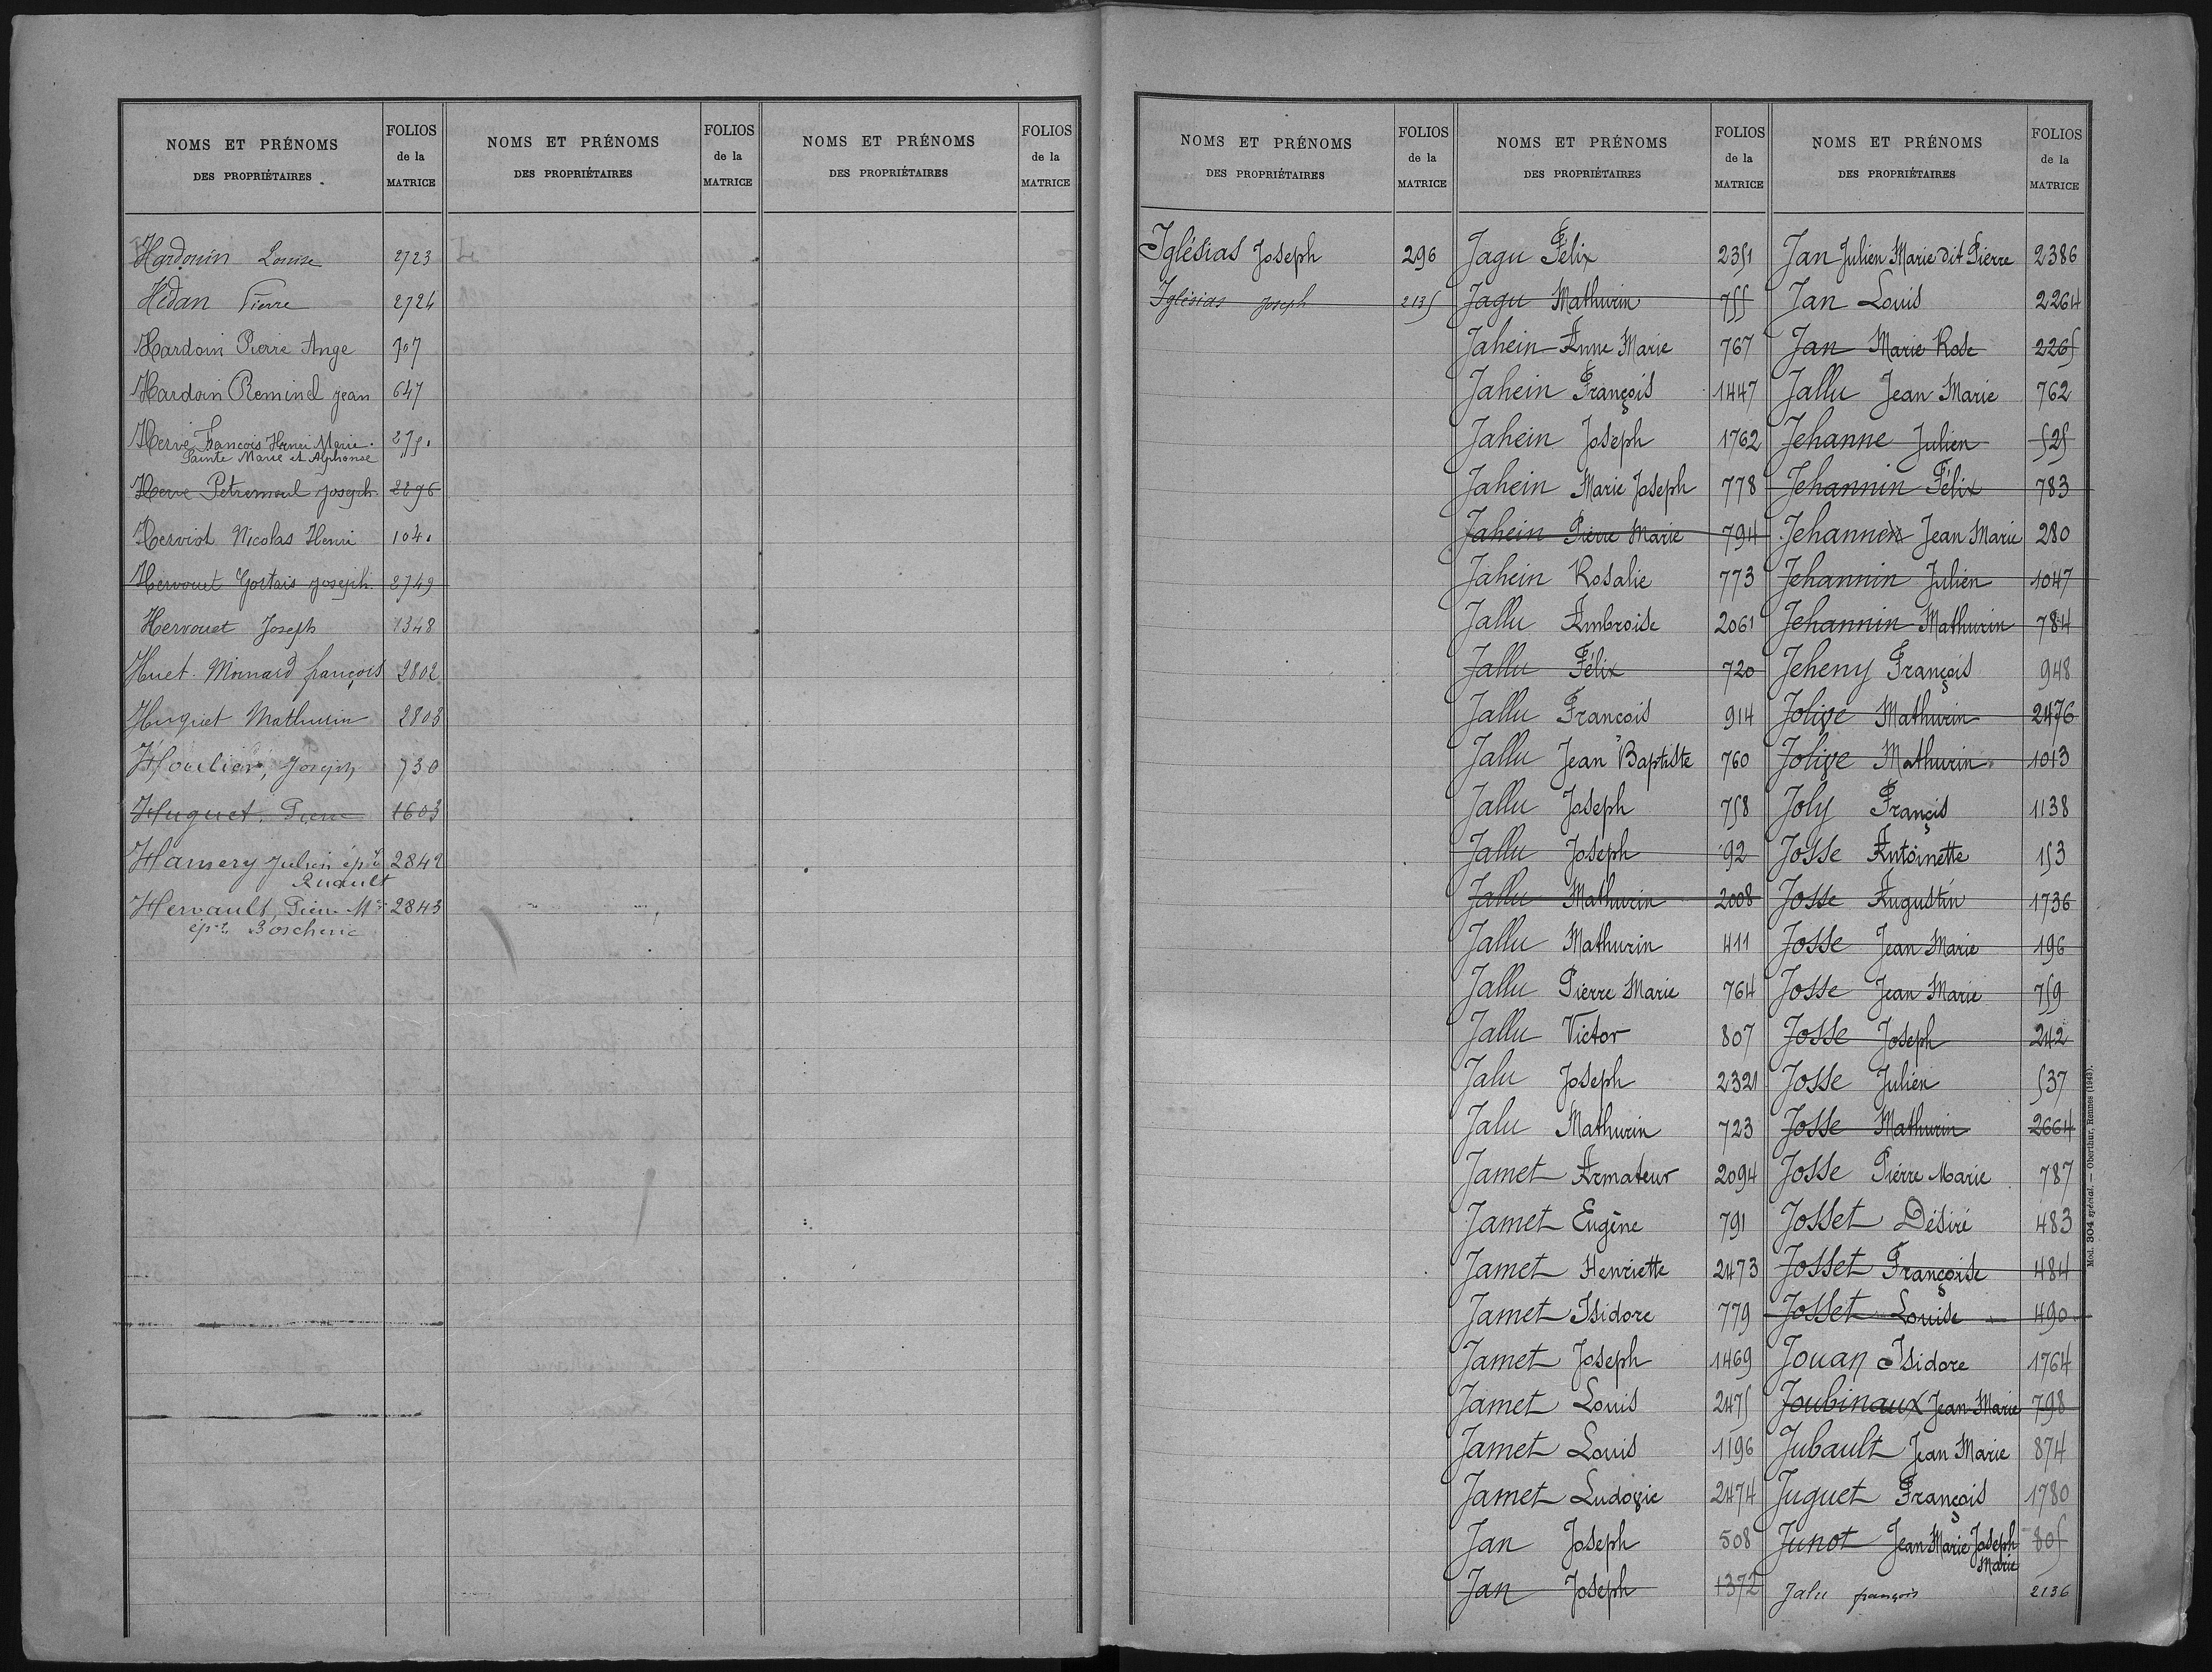 NOMS ET PRÉNOMS
DES PROPRIÉTAIRES
FOLIOS
de la
MATRICE
NOMS ET PRÉNOMS
DES PROPRIÉTAIRES
FOLIOS
de la
MATRICE
NOMS ET PRÉNOMS
DES PROPRIÉTAIRES
FOLIOS
de la
MATRICE
Hardouin Louise 2723
Hédan Pierre 2724
Hardoin Pierre Ange 707
Hardoin Reminel jean 647
Hervé François Henri Marie
Sainte Marie et Alphonse
Herve Petremoul joseph 2276
Herviot Nicolas Henri 1040
Hervouet Gortais joseph 2749
Hervouet Joseph 1348
Huet Moinard françois 2802
Huguet Mathurin 2803
Houlier, Joseph 730
Huguet Pierre 1603
Hamery Julien 2842
Ruault
Hervault, 2843
NOMS ET PRÉNOMS
DES PROPRIÉTAIRES
FOLIOS
de la
MATRICE
NOMS ET PRÉNOMS
DES PROPRIÉTAIRES
FOLIOS
de la
MATRICE
NOMS ET PRÉNOMS
DES PROPRIÉTAIRES
FOLIOS
de la
MATRICE
Iglésias Joseph 296
Iglésias Joseph 2135
Jagu Félix 2351
Jagu Mathurin 755
Jahein Anne Marie 767
Jahein François 1447
Jahein Joseph 1762
Jahein Marie Joseph 778
Jahein Pierre Marie 794
Jahein Rosalie 773
Jallu Ambroise 2061
Jallu Félix 720
Jallu Francois 914
Jallu Jean Baptiste 760
Jallu Joseph 758
Jallu Joseph 92
Jallu Mathurin 2008
Jallu Mathurin 411
Jallu Pierre Marie 764
Jallu Victor 807
Jalu Joseph 2321
Jalu Mathurin 723
Jamet Armateur 2094
Jamet Eugène 791
Jamet Henriette 2473
Jamet Isidore 779
Jamet Joseph 1469
Jamet Louis 2475
Jamet Louis 1196
Jamet Ludovic 2474
Jan Joseph 508
Jan Joseph 1372
Jan Julien Marie dit Pierre 2386
Jan Louis 2264
Jan Marie Rose 2265
Jallu Jean Marie 762
Jehanne Julien 525
Jehannin Félix 783
Jehannin Jean Marie 280
Jehannin Julien 1047
Jehannin Mathurin 784
Jeheny François 948
Jolive Mathurin 2476
Jolive Mathurin 1013
Joly Françis 1138
Josse Antoinette 153
Josse Augustin 1736
Josse Jean Marie 196
Josse Jean Marie 759
Josse Joseph 242
Josse Julien 537
Josse Mathurin 2664
Josse Pierre Marie 787
Josset Désiré 483
Josset Françoise 484
Josset Louise 490
Jouan Isidore 1764
Joubinaux Jean Marie 798
Jubault Jean Marie 874
Juguet François 1780
Junot Jean Marie Joseph 805
Marie
Jalu françois 2136
Mod. 304 spécial. — Oberthur, Rennes (1943).